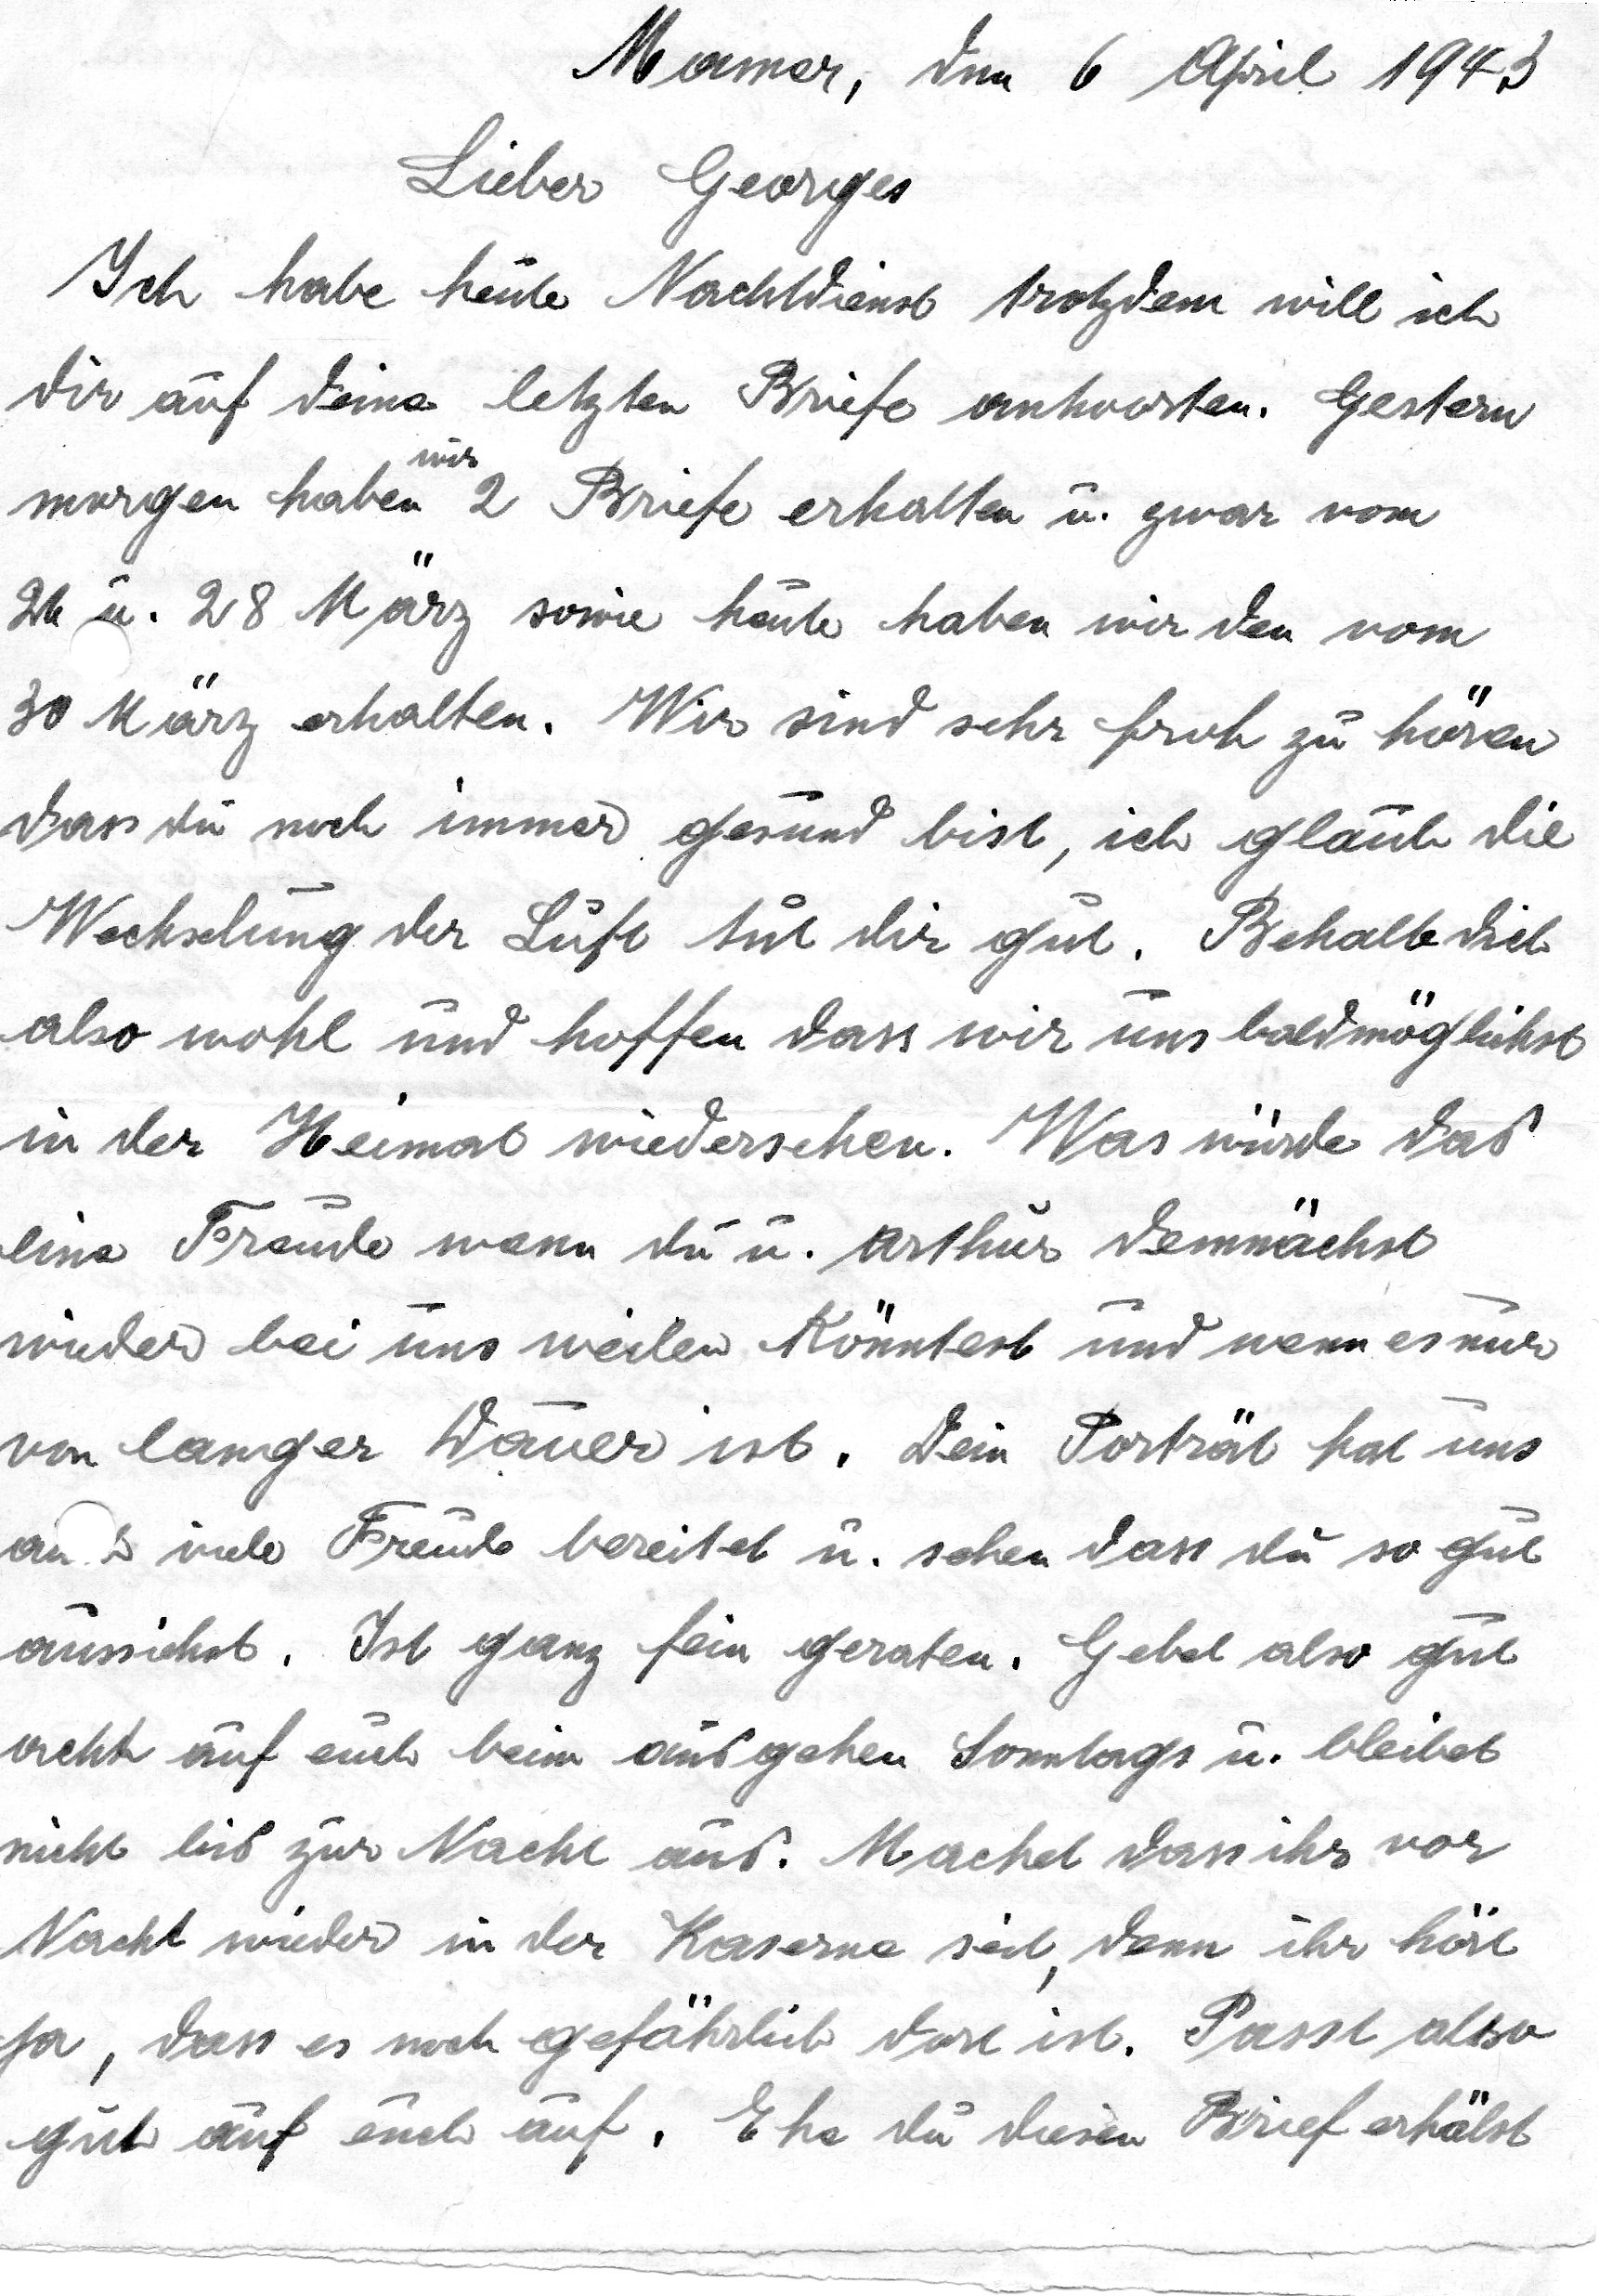 Mamer, den 6 April 1943
Lieber Georges
Ich habe heute Nachtdienst trotzdem will ich
dir auf deine letzten Briefe antworten. Gestern
morgen haben wir 2 Briefe erhalten u. zwar vom
26 u. 28 März sowie heute haben wir den vom
30 März erhalten. Wir sind sehr froh zu hören
dass du noch immer gesund bist, ich glaub die
Wechselung der Luft tut dir gut. Behalte dich
also wohl und hoffen dass wir uns baldmöglichst
in der Heimat wiedersehen. Was würde das
eine Freude wenn du u. Arthur demnächst
wieder bei uns weilen könntest und wenn es nur
von langer Dauer ist. Dein Porträt hat uns
viele Freude bereitet u. sehen dass du so gut
aussiehst. Ist ganz fein geraten. Gebet also gut
acht auf euch beim ausgehen Sonntags u. bleibet
nicht bis zur Nacht aus. Machet dass ihr vor
Nacht wieder in der Kaserne seid, denn ihr hört
ja, dass es noch gefährlich dort ist. Passt also
gut auf euch auf. Ehe du diesen Brief erhälst